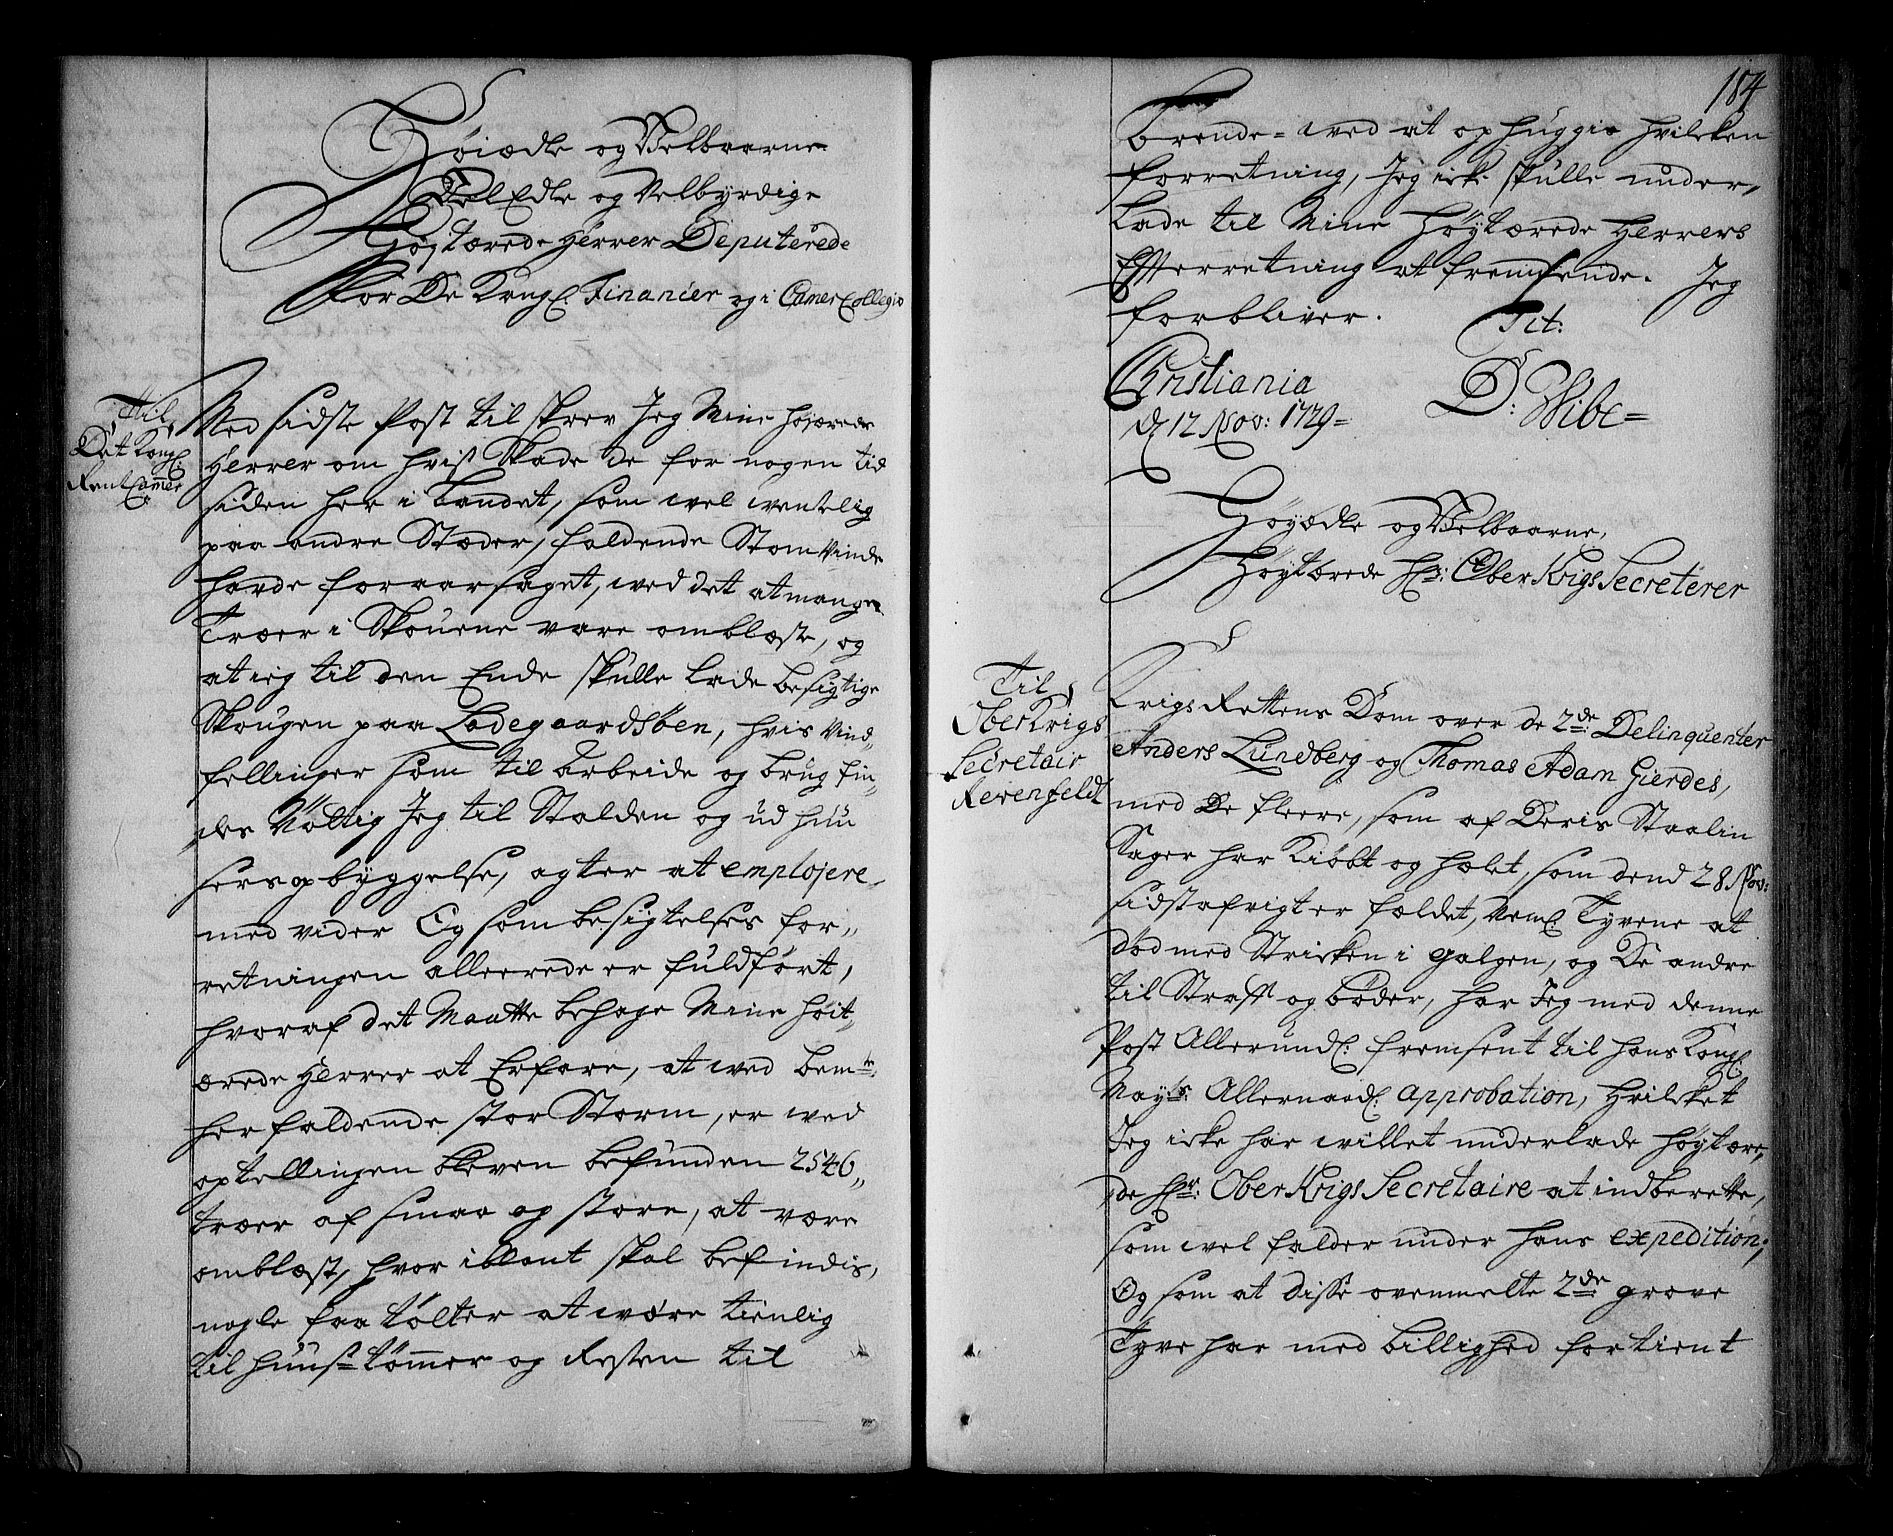 Høiædle og Velbaarne
VelEdle og Velbyrdige
Høgstærede Herrer Deputerede
for De Kongl. Financier og i CamerCollegio
Til
Det Kongl:
RentCammer
Co:
Med sidste Post til skrev Jeg Mine høiærede
Herrer om hvis Skade de for nogen tid
siden her i Landet, som vel ventelig
paa andre Stæder, holdende StormVinde
hafde foraarsaget, ved det at mange
Træer i Skouene vare omblæste, og
at ieg til den Ende skulle lade besigtige
Skougen paa Ladegaardsøen, hvis Vind,,
fellinger som til Arbeide og brug fin,,
des nøttig Jeg til Stalden og ud huu
sers opbyggelse, agter at emplojere,
med vider Og som besigtelses for,,
retningen alleerede er fuldført,
hvoraf det Maatte behage Mine høit,,
ærede Herrer at Erfare, at ved bem.te
her faldende stor Storm, er ved
optellingen bleven befunden 2546,,
træer af smaa og store, at være
omblæst, hvor iblant skal befindis,
nogle faa tølter at være tienlig
til huus tømmer og Resten til
184
Brende= ved at ophugge hvilcken
forretning, Jeg icke skulle under,,
lade til Mine Høytærede Herrers
Efterretning at fremsende. Jeg
forbliver.
Tit:
Christiania
d. 12 Nov: 1729=
D: Wibe=
Høyædle og Velbaarne,
Høytærede Hr: Ober Krigs Secreterer
Til
OberKrigs
Secretair
Revenfeldt
Krigs Rettens Dom over de 2de: Delinquenter
Anders Lundberg og Thomas Adam Gierdes,
med De fleere, som af Deris Staalin
Sager har Kiøbt og hælet, som dend 28 Nov:
sidstafvigt er faldet, Neml. Tyvene at
død med Stricken i galgen, og De andre
til Straff og bøder, har Jeg med denne
Post Allerund.: fremsent til hans Kongl:
Mayts: Allernaad: approbation, hvilcket
Jeg icke har villet underlade høytære,,
de Hr: Ober Krigs Secretaire at indberette,
som vel falder under hans expedition;
Og som at disse ovenmelte 2de grove
Tyve har med billighed fortient